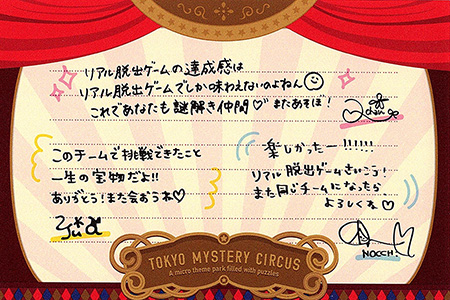 リアル脱出ゲームの達成感は
リアル脱出ゲームでしか味わえないのよねん
これであなたも謎解き仲間♡またあそぼ!
このチームで挑戦できたこと
一生の宝物だよ!!
ありがとう!また会おうね♡
楽しかったー!!!!!!
リアル脱出ゲームさいこう!
また同じチームになったら
よろしくね♡
NOCCH!
TOKYO MYSTERY CIRCUS
A micro theme park filled with puzzles